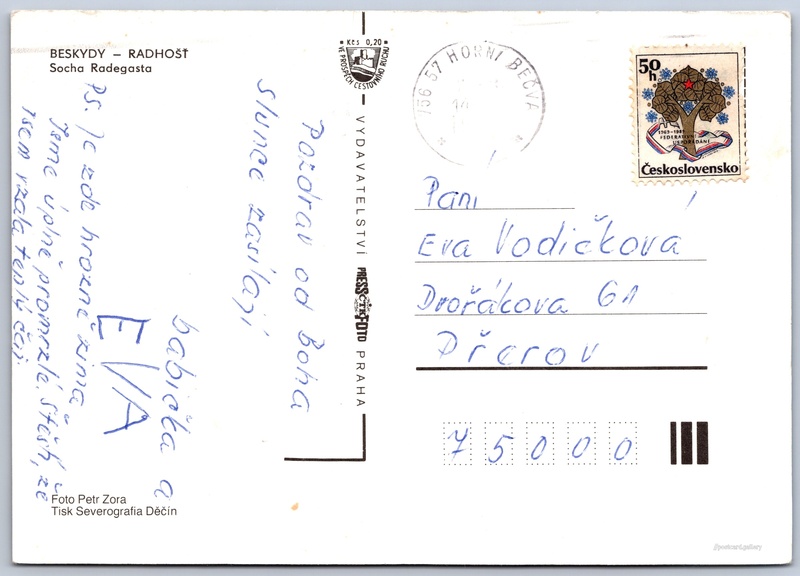 BESKYDY – RADHOŠŤ
Socha Radegasta
Kčs 0,20
VE PROSPĚCH CESTOVNÍHO RUCHU
VYDAVATELSTVÍ PRESSFOTO PRAHA
ČTK
756 57 HORNÍ BEČVA
50 h
1969-1989
FEDERATIVNÍ
USPOŘÁDÁNÍ
Československo
Pozdrav od Boha
slunce zasílají
babička a
EVA
Ps. Je zde hrozně zima
Jsme úplně promrzlé, štěstí, že
jsem vzala teplý čaj.
Paní
Eva Vodičkova
Dvořákova 61
Přerov
75000
Foto Petr Zora
Tisk Severografia Děčín